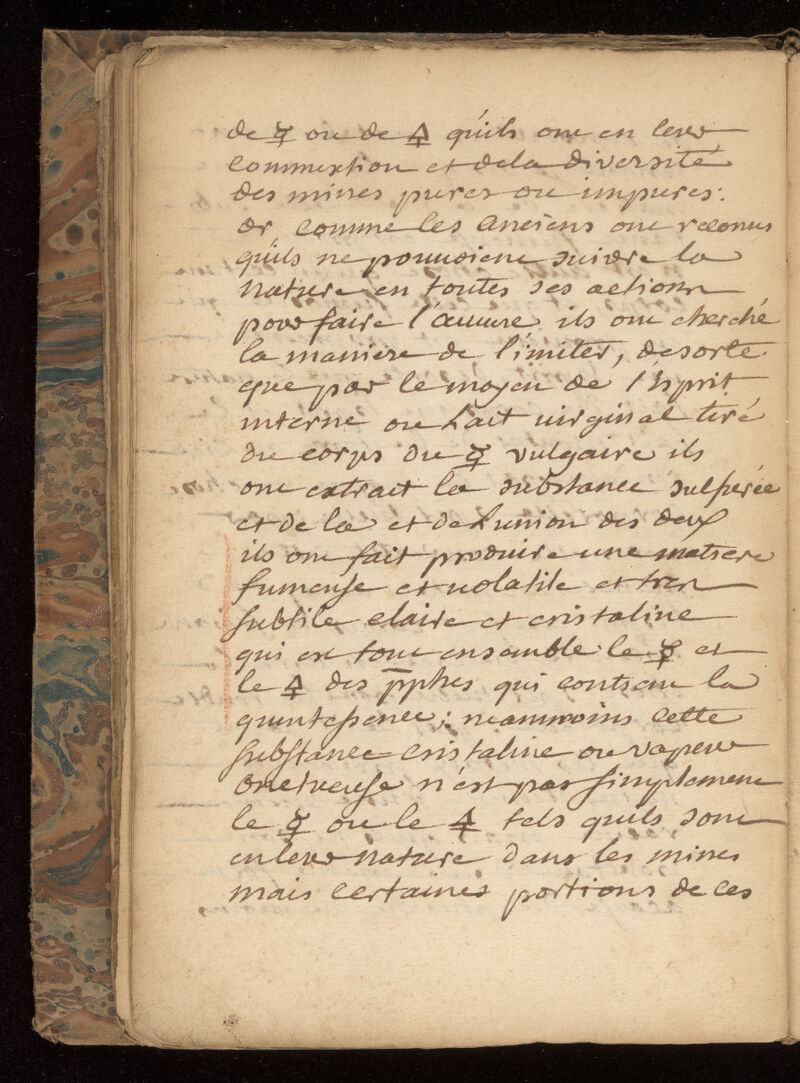 de ☿ ou de 🜍 qu'ils ont en leur
commixtion et de la diversité
des mines pures ou impures:
or comme les anciens ont reconus
qu'ils ne pouuoient suivre la
nature en toutes ses actions
pour faire l'œuure ils ont cherché
la maniere de l'imiter, desorte
que par le moyen de l'Esprit
interne ou Lait virginal tiré
du corps du ☿ vulgaire ils
ont extrait la substance sulfurée
et de la et de L'union des deux
ils ont fait produire une matiere
fumeuse et uolatile et tres
subtile claire et cristaline
qui est tout ensemble le ☿ et
le 🜍 des pphes qui contient la
quintessence; neammoins cette
substance cristaline ou vapeur
onctueuse n'est pas simplement
le ☿ ou le 🜍 tels quils sont
en leur nature dans les mines
mais certaines portions de ces